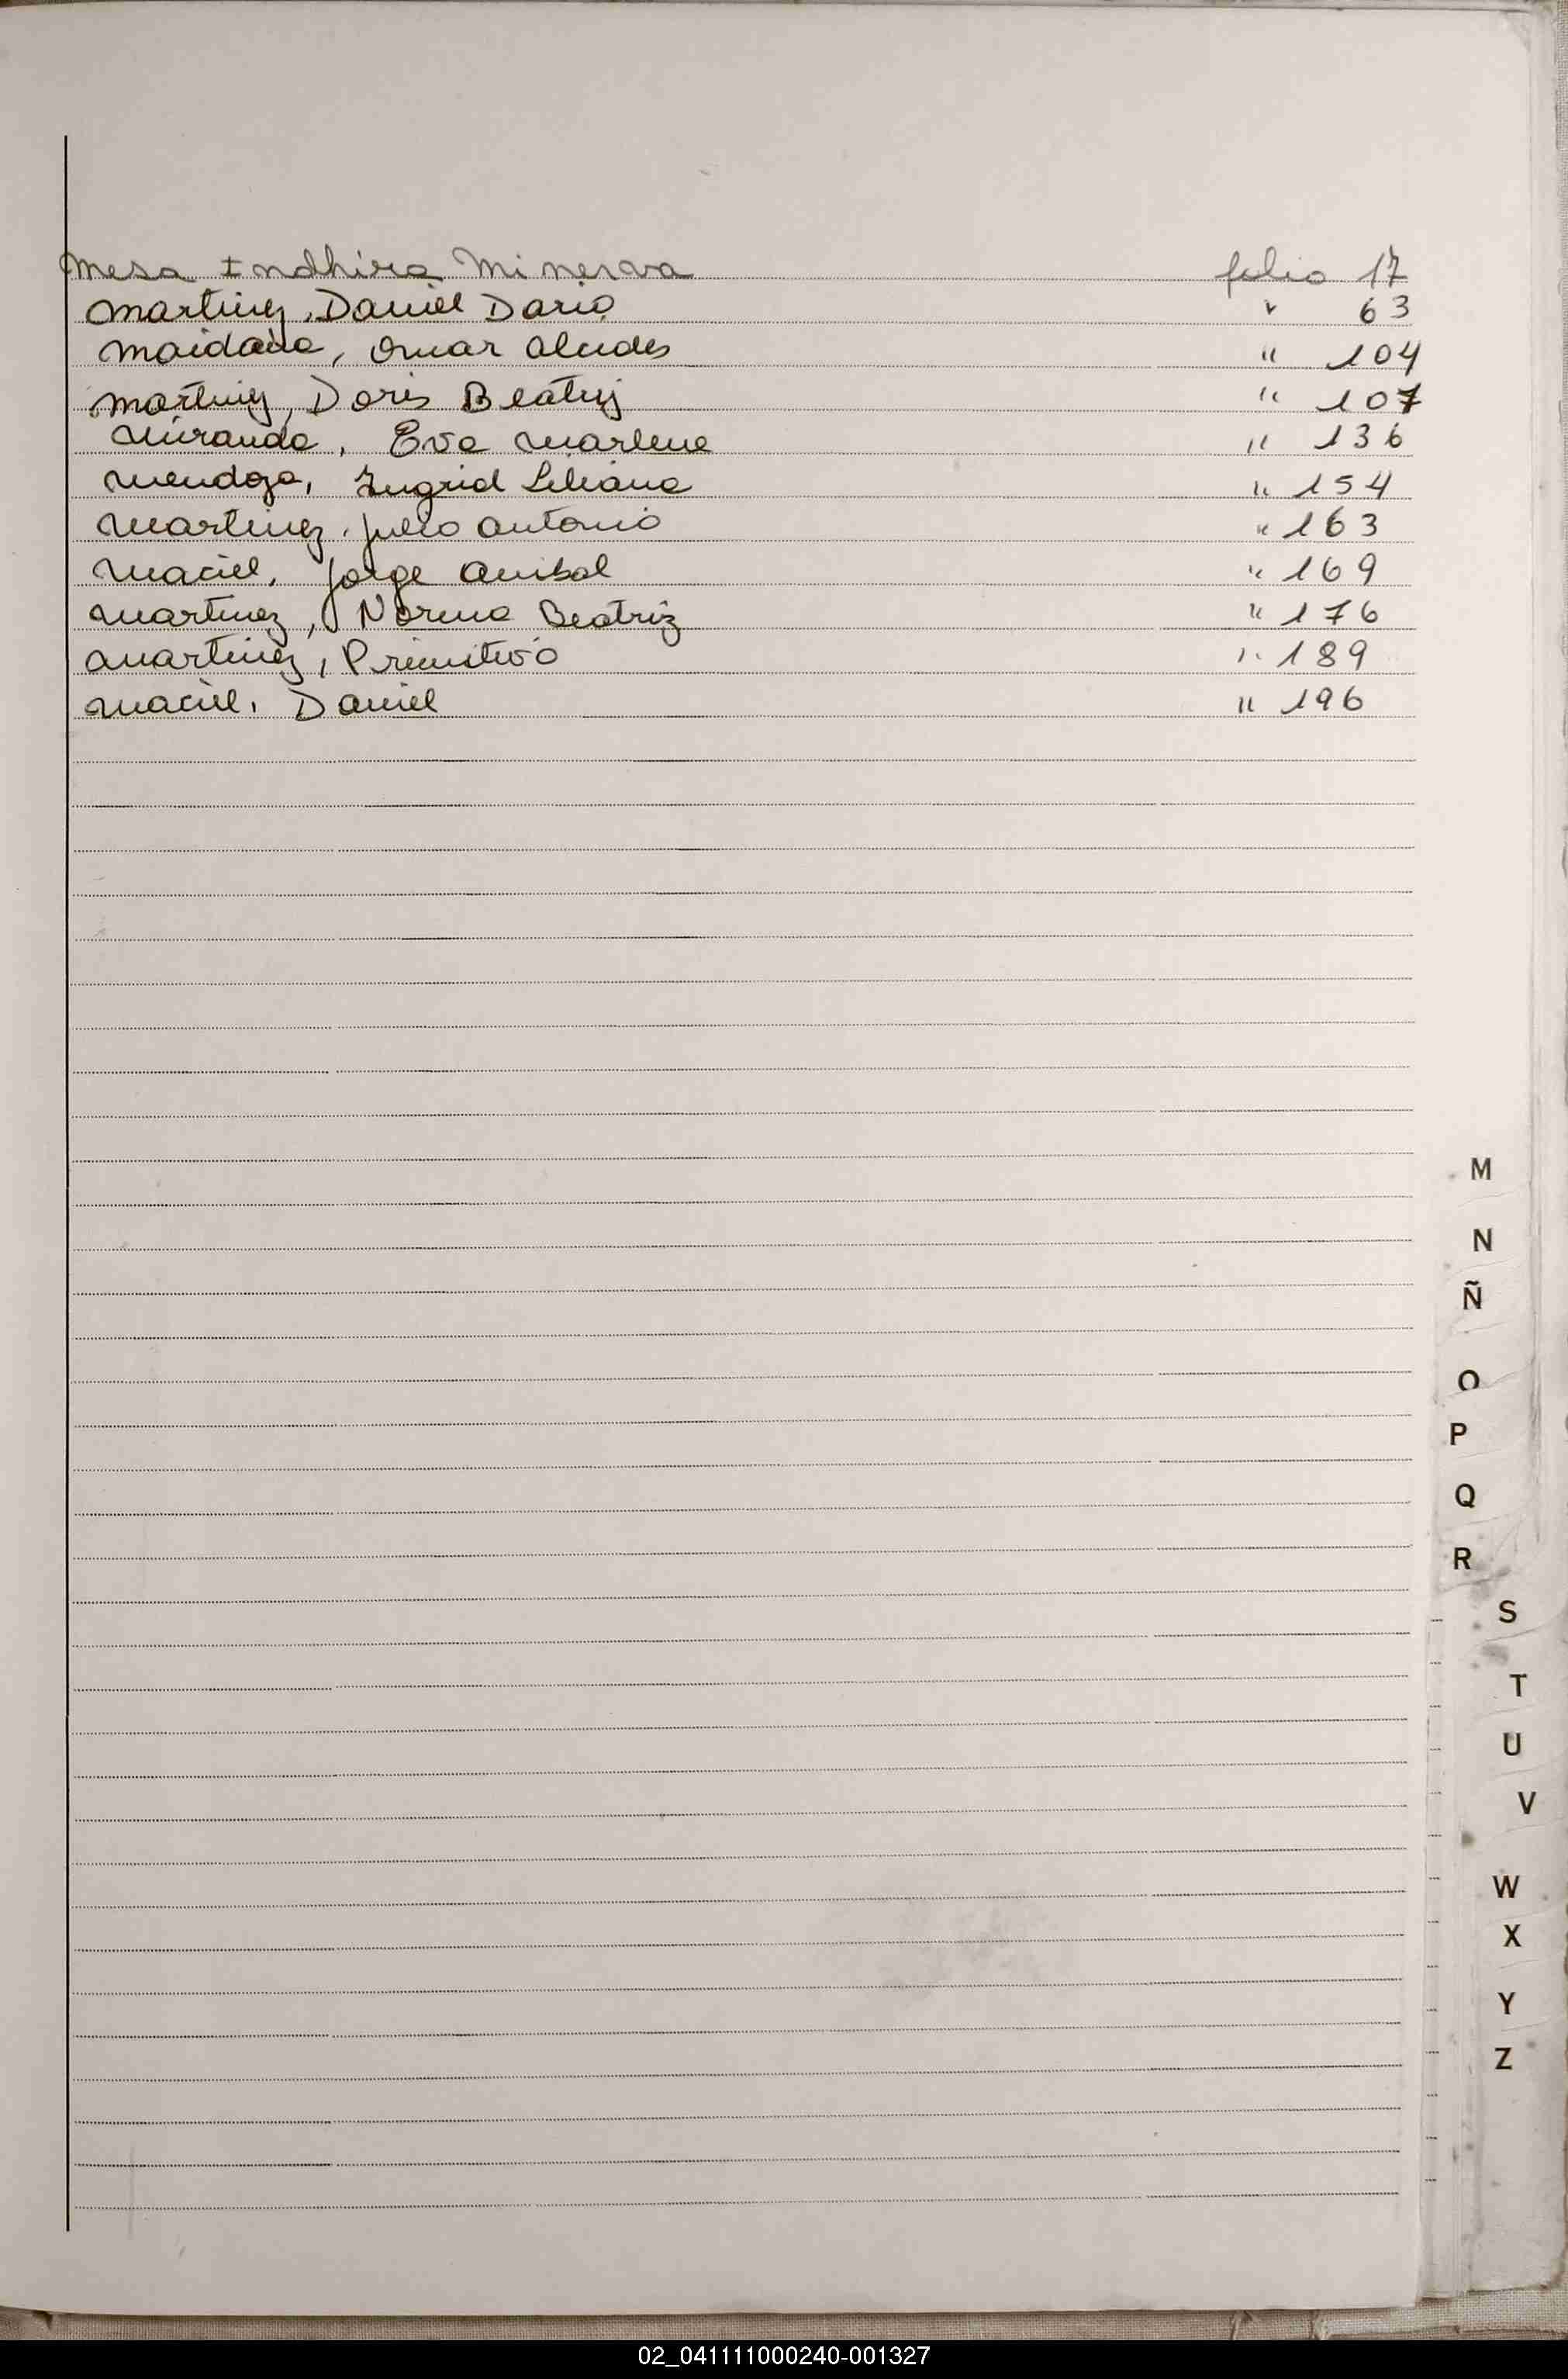 Mesa Indhira Minerva folio 17
Martinez, Daniel Dario " 63
Maidana, Omar Alcides " 104
Martinez, Doris Beatriz " 107
Miranda, Eva Marlene " 136
Mendoza, Ingrid Liliana " 154
Martinez, Julio Antonio " 163
Maciel, Jorge Anibal " 169
Martinez, Norma Beatriz " 176
Martinez, Primitivo " 189
Maciel, Daniel " 196
M
N
Ñ
O
P
Q
R
S
T
U
V
W
X
Y
Z
02_041111000240-001327